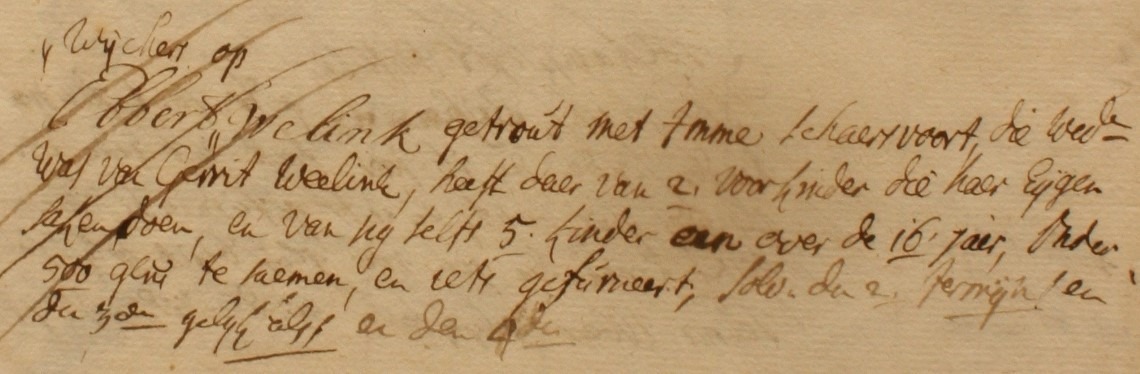 Wijchers op
Obbert Weelink getrout met Imme schaersvoort, die wede
was van Gerrit Weelink, heeft daer van 2. voorkinder die haer Eijgen
saken doen, en van sig selfs 5. kinder een over de 16. jaer, Onder
500 glns te saemen, en iets gefurneert, solv. den 2. Termijn en
den 3den gelijk als en den 4den